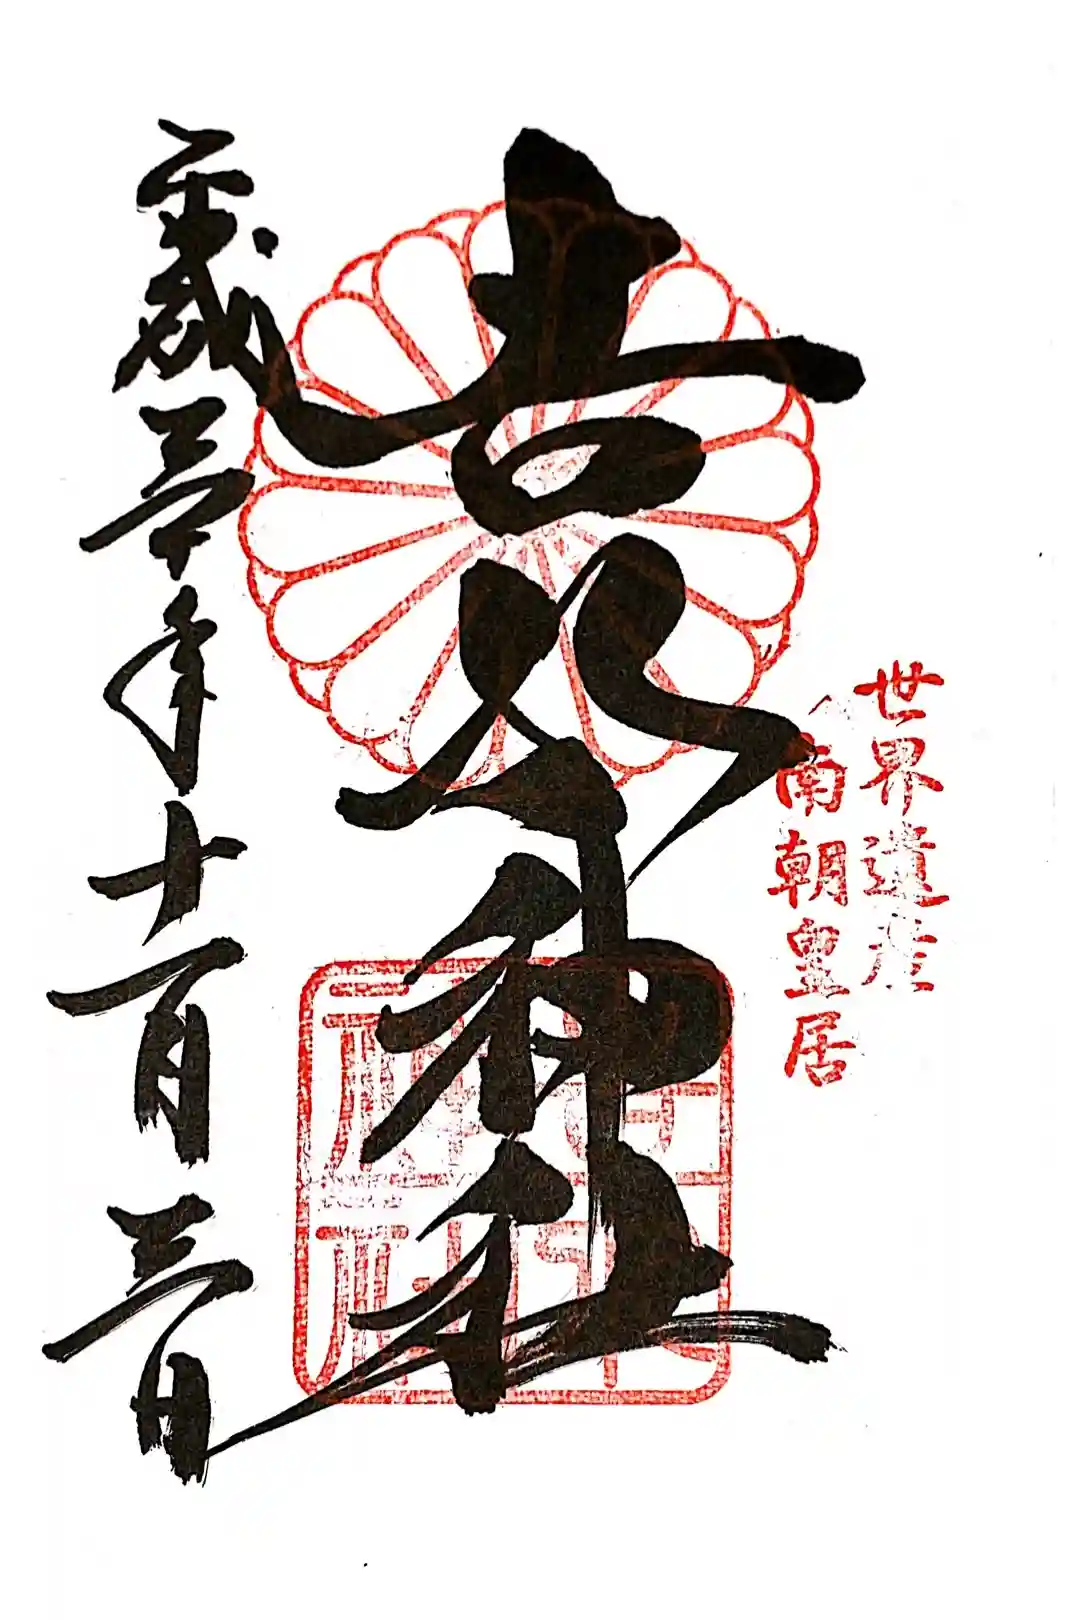 世界遺産
南朝皇居
吉水神社
平成三十年十一月三日
吉水
神社